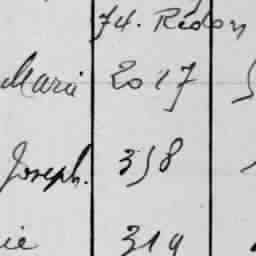 74. Rédon
Marie 2017
Joseph. 358
ie 319